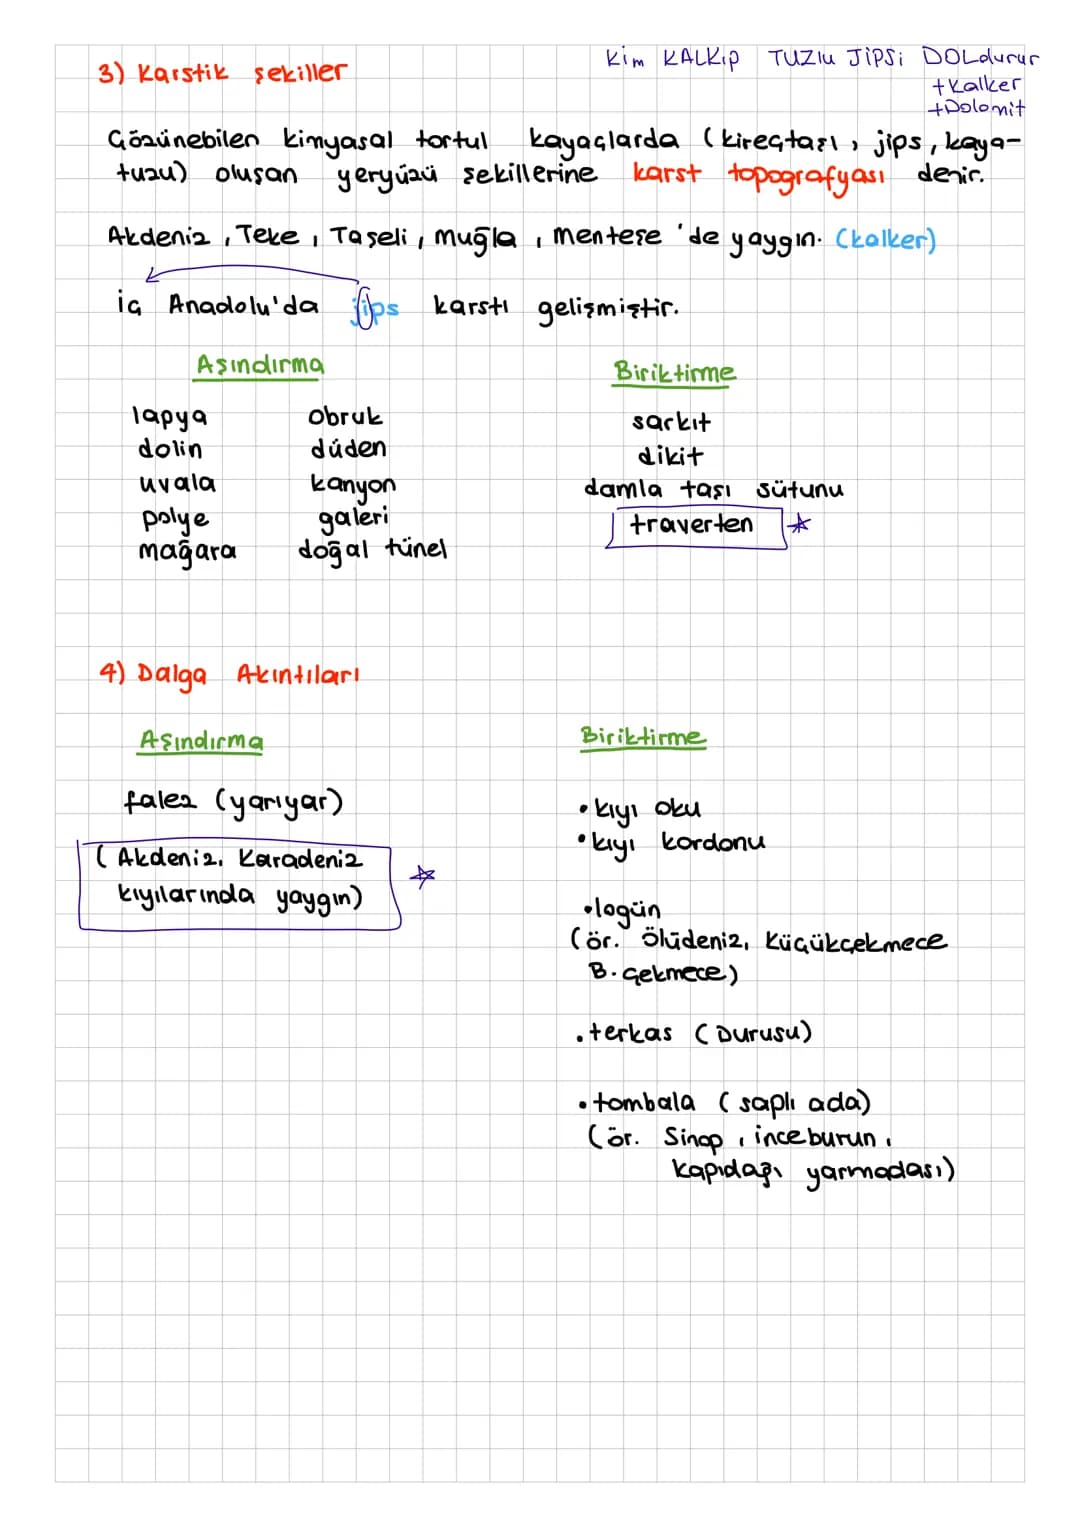 3) Karstik şekiller
Kim KALKıp TUZlu JİPSi DOLdurur
+Kalker
+Dolomit
Çözünebilen kimyasal tortul kayaçlarda (kireçtaşı, jips, kaya-
tuzu) oluşan yeryüzü şekillerine karst topografyası denir.
Akdeniz, Teke, Taşeli, muğla, menteşe 'de yaygın. (kalker)
iç Anadolu'da jips karstı gelişmiştir.
Aşındırma
lapya obruk
dolin düden
uvala kanyon
polye galeri
mağara doğal tünel
Biriktirme
sarkıt
dikit
damla taşı sütunu
traverten
4) Dalga Akıntıları
Aşındırma
falez (yarıyar)
(Akdeniz, Karadeniz
kıyılarında yaygın)
Biriktirme
• kıyı oku
• kıyı kordonu
• logün
(ör. Ölüdeniz, Küçükçekmece
B. çekmece)
. terkas (Durusu)
• tombala (saplı ada)
(ör. Sinop, inceburun,
kapıdağı yarmadası)